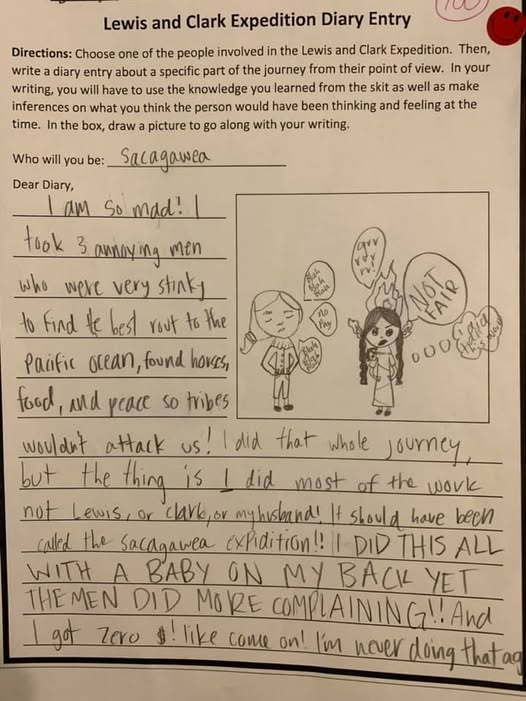 100
Lewis and Clark Expedition Diary Entry
Directions: Choose one of the people involved in the Lewis and Clark Expedition. Then,
write a diary entry about a specific part of the journey from their point of view. In your
writing, you will have to use the knowledge you learned from the skit as well as make
inferences on what you think the person would have been thinking and feeling at the
time. In the box, draw a picture to go along with your writing.
Who will you be: Sacagawea
Dear Diary,
I am so mad! I
took 3 annoying men
who were very stinky
to find the best rout to the
Pacific ocean, found horses,
food, and peace so tribes
Blah
Blah
Blah
no
Pay
Blah
Blah
grr
NOT
FAIR
wouldn't attack us! I did that whole journey,
but the thing is I did most of the work
not Lewis, or Clark, or my husband! It should have been
called the Sacagawea expidition!! I DID THIS ALL
WITH A BABY ON MY BACK YET
THE MEN DID MORE COMPLAINING!! And
I got zero $! like come on! I'm never doing that ag